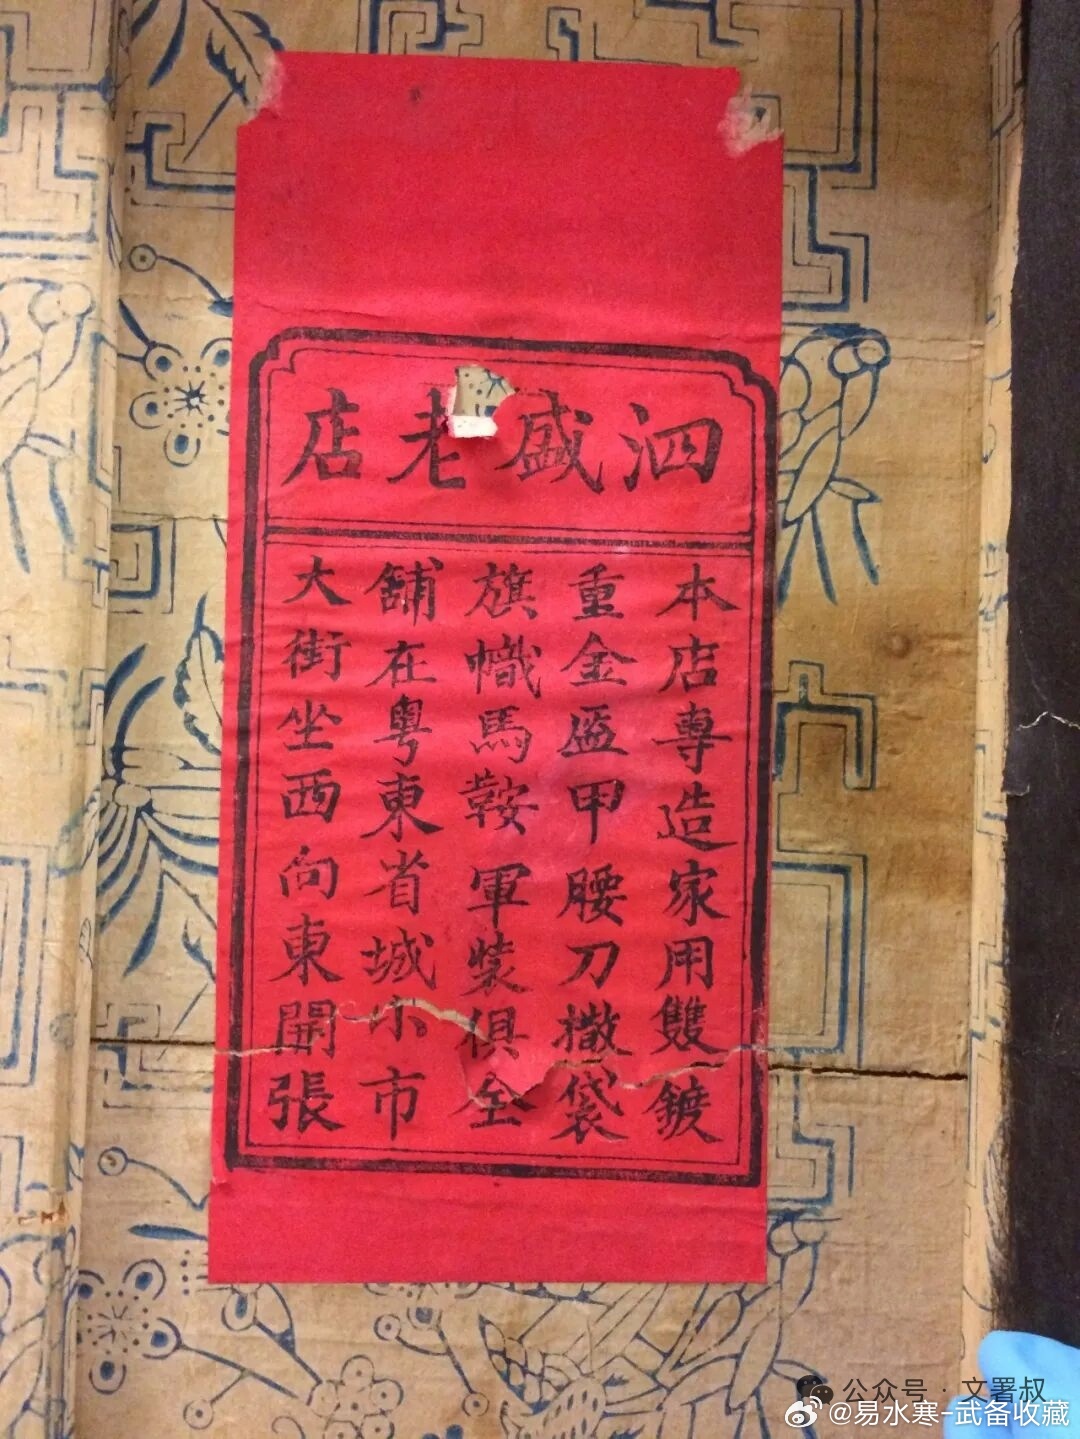 泗盛老店
本店專造家用雙鍍
重金盔甲腰刀撒袋
旗幟馬鞍軍裝俱全
舖在粵東省城小市
大街坐西向東開張
公众号·文署叔
@易水寒-武备收藏